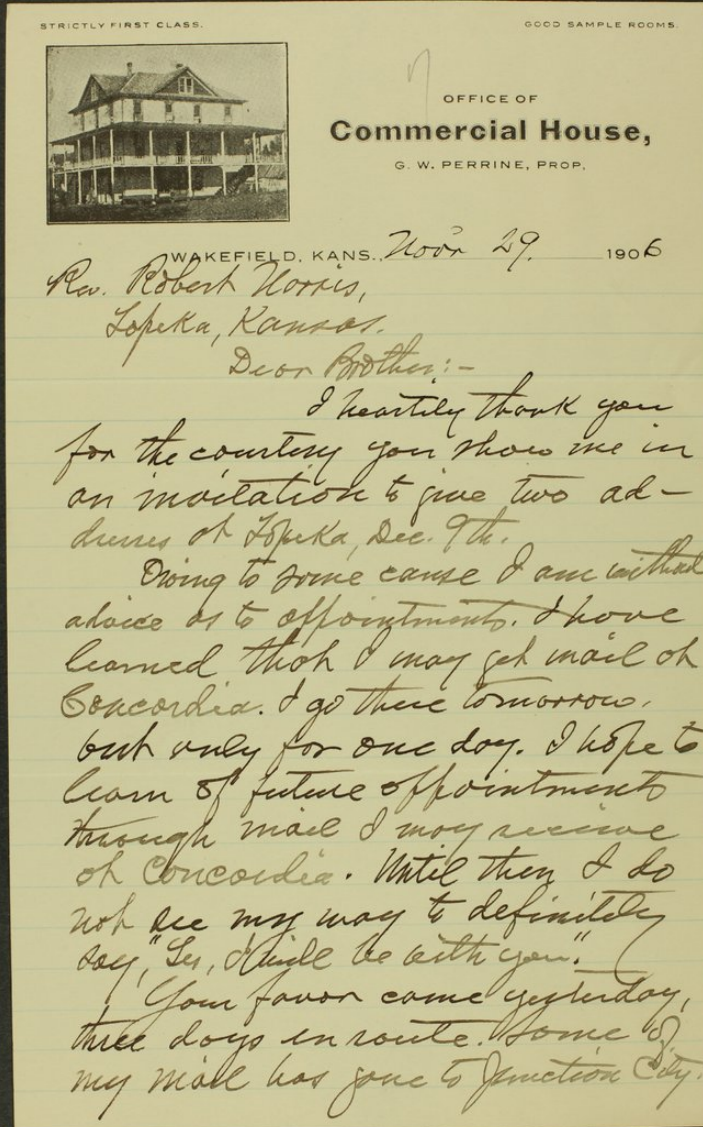 STRICTLY FIRST CLASS.
GOOD SAMPLE ROOMS.
OFFICE OF
Commercial House,
G. W. PERRINE, PROP.
WAKEFIELD, KANS., Nov'r 29, 1906
Rev. Robert Norris,
Topeka, Kansas.
Dear Brother:-
I heartily thank you
for the courtesy you show me in
an invitation to give two ad-
dresses at Topeka, Dec. 9th.
Owing to some cause I am without
advice as to appointments. I have
learned that I may get mail at
Concordia. I go there tomorrow,
but only for one day. I hope to
learn of future appointments
through mail I may receive
at Concordia. Until then I do
not see my way to definitely
say, "Yes, I will be with you."
Your favor came yesterday,
three days en route. Some of
my mail has gone to Junction City.